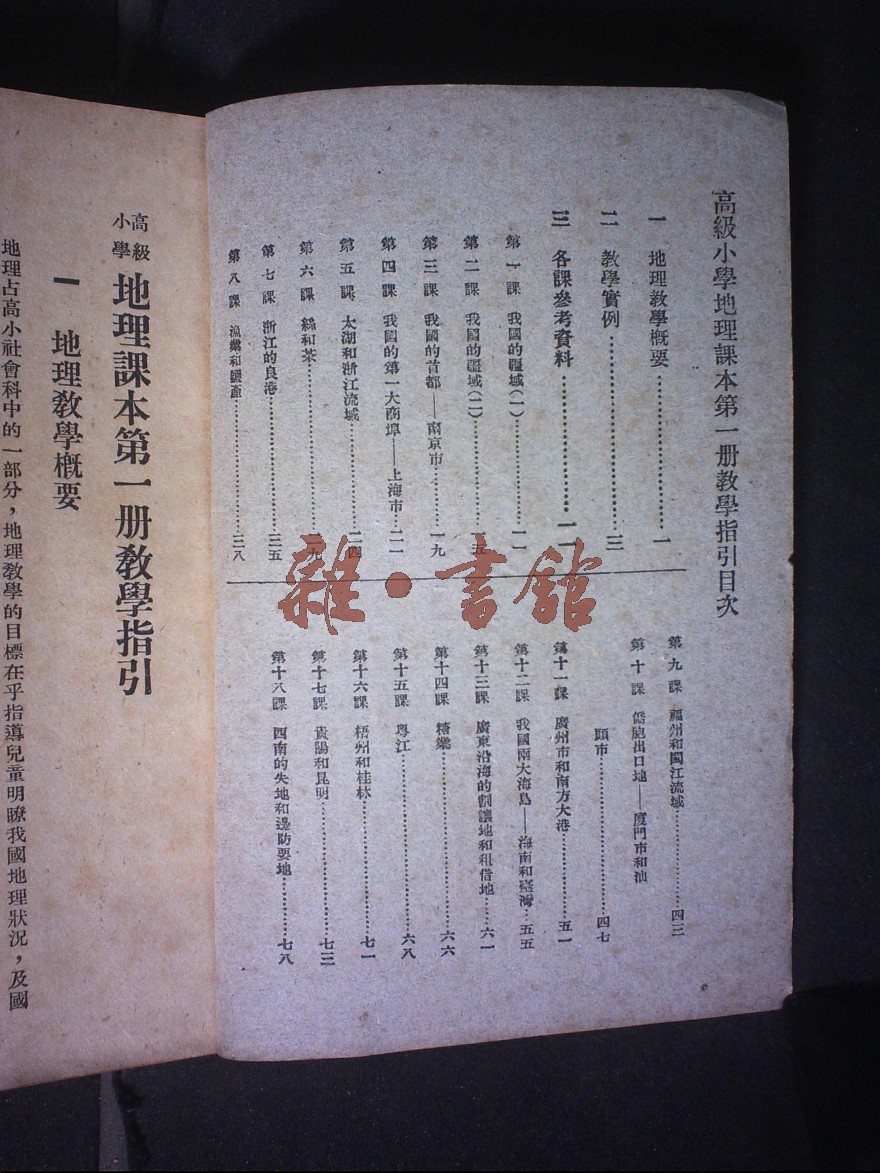 高級小學地理課本第一册教學指引目次
一 地理教學概要…………一
二 教學實例…………三
三 各課參考資料…………一一
第一課 我國的疆域(一)…………一一
第二課 我國的疆域(二)…………五
第三課 我國的首都——南京市…………一九
第四課 我國的第一大商埠——上海市…二一
第五課 太湖和浙江流域…………二四
第六課 絲和茶…………二九
第七課 浙江的良港…………三五
第八課 漁業和鹽產…………三八
第九課 福州和閩江流域…………四三
第十課 僑胞出口地——廈門市和汕
頭市…………四七
第十一課 廣州市和南方大港…………五一
第十二課 我國兩大海島——海南和臺灣…五五
第十三課 廣東沿海的割讓地和租借地……六一
第十四課 糖業…………六六
第十五課 粵江…………六八
第十六課 梧州和桂林…………七一
第十七課 貴陽和昆明…………七三
第十八課 西南的失地和邊防要地…………七八
雜·書館
高級
小學 地理課本第一册教學指引
一 地理教學概要
地理占高小社會科中的一部分，地理教學的目標在乎指導兒童明瞭我國地理狀況，及國